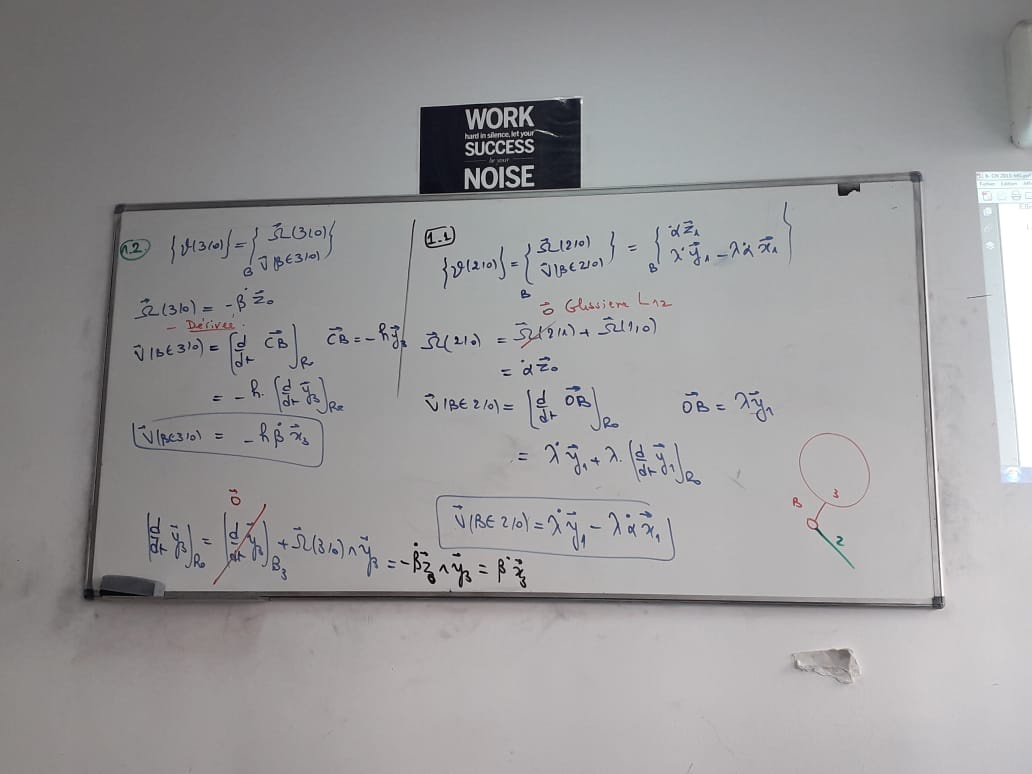 WORK
hard in silence, let your
SUCCESS
be your
NOISE
1.2
{𝒱(3/0)} = { Ω⃗(3/0) V⃗(B∈3/0) }
B
Ω⃗(3/0) = -β̇ z⃗₀
- Dérivée.
V⃗(B∈3/0) = [d/dt C⃗B]R C⃗B = -h y⃗₃
= -h. [d/dt y⃗₃]R₀
V⃗(B∈3/0) = -h β̇ x⃗₃
0⃗
[d/dt y⃗₃]R₀ = [d/dt y⃗₃]B₃ + Ω⃗(3/0) ∧ y⃗₃ = -β̇ z⃗₀ ∧ y⃗₃ = β̇ x⃗₃
1.1
{𝒱(2/0)} = { Ω⃗(2/0) V⃗(B∈2/0) } = { α̇ z⃗₁ λ̇ y⃗₁ - λ α̇ x⃗₁ }
B B
0⃗ Glissiere L12
Ω⃗(2/0) = Ω⃗(2/1) + Ω⃗(1/0)
= α̇ z⃗₀
V⃗(B∈2/0) = [d/dt O⃗B]R₀ O⃗B = λ y⃗₁
= λ̇ y⃗₁ + λ. [d/dt y⃗₁]R₀
V⃗(B∈2/0) = λ̇ y⃗₁ - λ α̇ x⃗₁
B 3
2